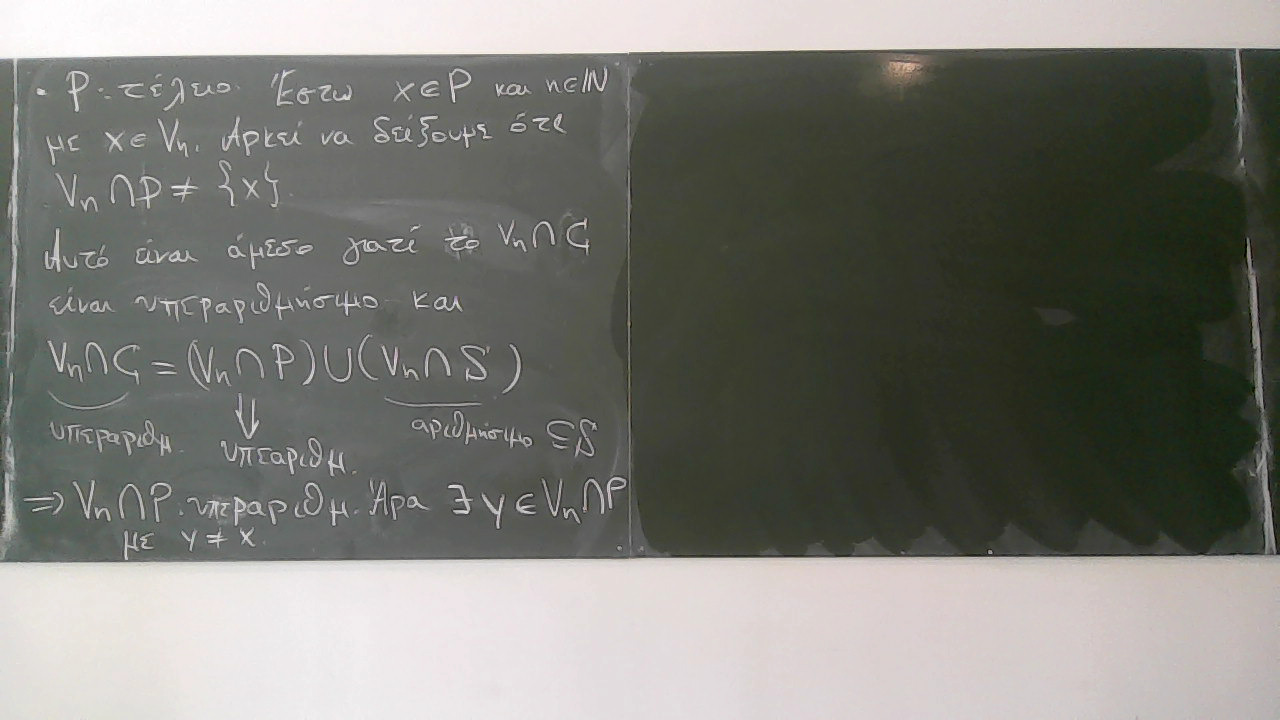 • P: τέλειο. Έστω x ∈ P και n ∈ ℕ
με x ∈ Vₙ. Αρκεί να δείξουμε ότι
Vₙ ∩ P ≠ {x}.
Αυτό είναι άμεσο γιατί το Vₙ ∩ C
είναι υπεραριθμήσιμο και
Vₙ ∩ C = (Vₙ ∩ P) ∪ (Vₙ ∩ S)
υπεραριθμ. ⇓ υπεαριθμ. αριθμήσιμο ⊆ S
⇒ Vₙ ∩ P : υπεραριθμ. Άρα ∃ y ∈ Vₙ ∩ P
με y ≠ x.